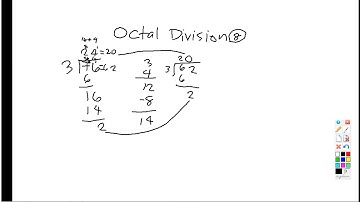 Octal Division 8
24=20
3 76 62
6
16
14
2
3
4
12
-8
14
20
3 62
6
2